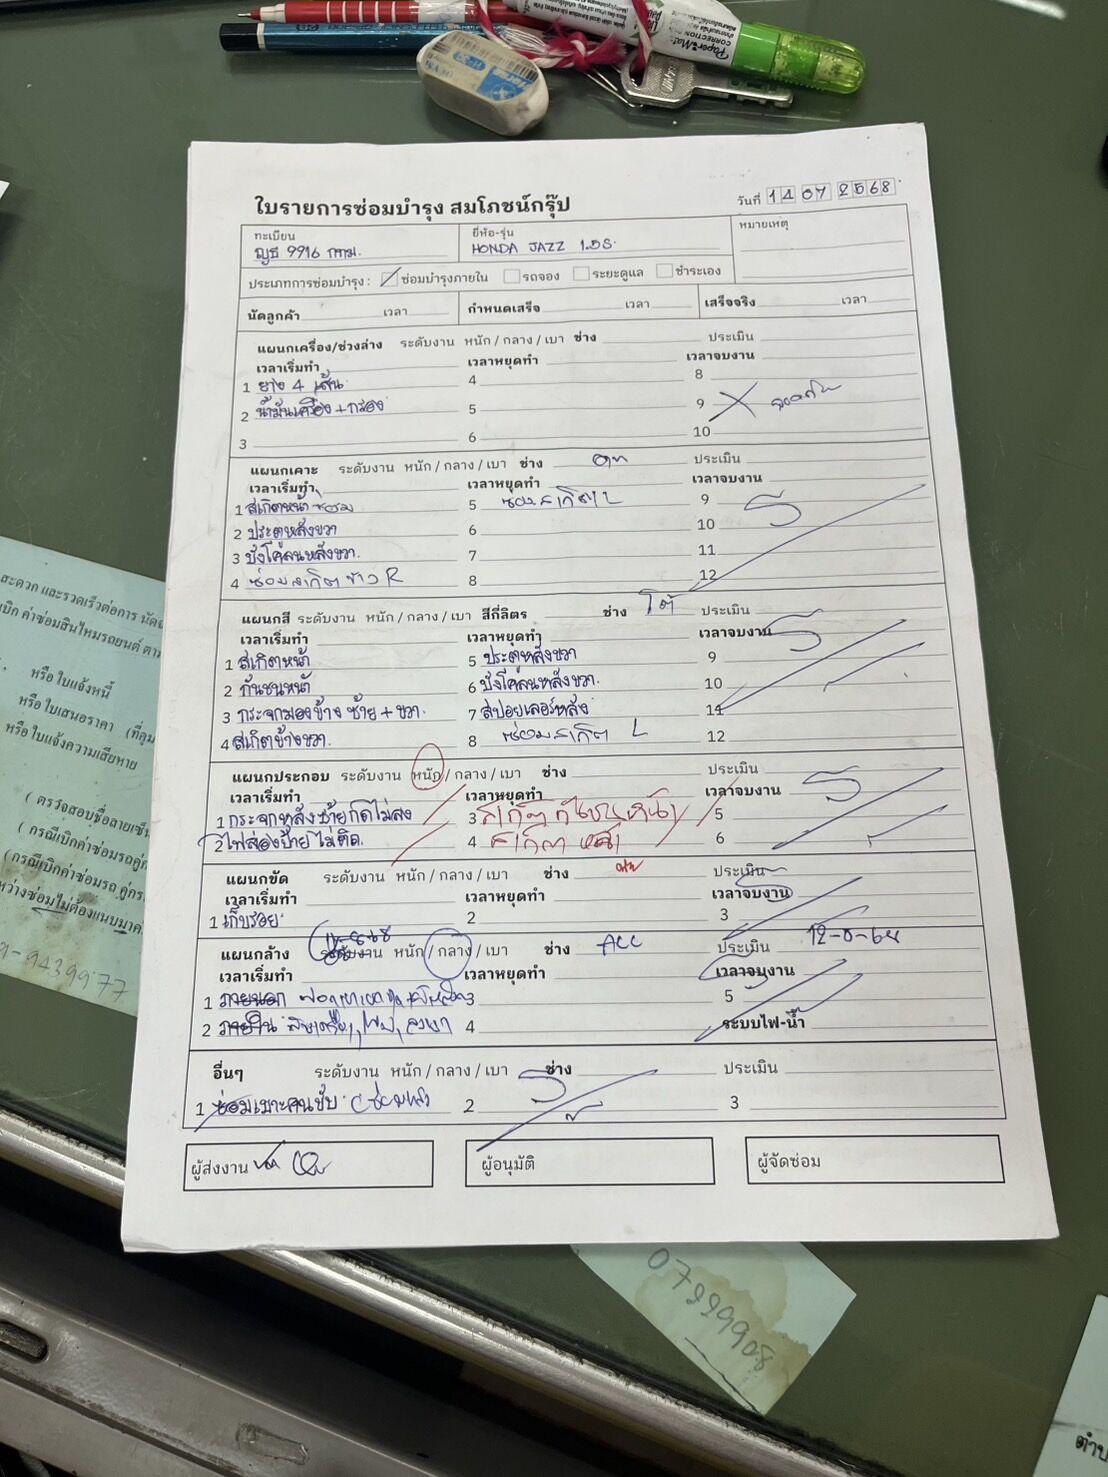 PaperMate
CORRECTION PEN
ใบรายการซ่อมบำรุง สมโภชน์กรุ๊ป
วันที่ 14 07 2568
ทะเบียน
ยี่ห้อ-รุ่น
หมายเหตุ
9916 กทม.
HONDA JAZZ 1.5S.
ประเภทการซ่อมบำรุง: ซ่อมบำรุงภายใน รถจอง ระยะดูแล ชำระเอง
นัดลูกค้า เวลา กำหนดเสร็จ เวลา เสร็จจริง เวลา
แผนกเครื่อง/ช่วงล่าง ระดับงาน หนัก / กลาง / เบา ช่าง ประเมิน
เวลาเริ่มทำ เวลาหยุดทำ เวลาจบงาน
1 ยาง 4 เส้น 4 8
2 น้ำมันเครื่อง + กรอง 5 9
3 6 10
แผนกเคาะ ระดับงาน หนัก / กลาง / เบา ช่าง ประเมิน
เวลาเริ่มทำ เวลาหยุดทำ เวลาจบงาน
1 สเกิตหน้า ซ่อม 5 ซ่อมสเกิต L 9
2 ประตูหลังขวา 6 10
3 บังโคลนหลังขวา 7 11
4 ซ่อมสเกิตข้าง R 8 12
แผนกสี ระดับงาน หนัก / กลาง / เบา สีกี่ลิตร ช่าง โต้ ประเมิน
เวลาเริ่มทำ เวลาหยุดทำ เวลาจบงาน
1 สเกิตหน้า 5 ประตูหลังขวา 9
2 กันชนหน้า 6 บังโคลนหลังขวา. 10
3 กระจกมองข้าง ซ้าย + ขวา. 7 สปอยเลอร์หลัง 11
4 สเกิตข้างขวา. 8 ซ่อมสเกิต L 12
แผนกประกอบ ระดับงาน หนัก / กลาง / เบา ช่าง ประเมิน
เวลาเริ่มทำ เวลาหยุดทำ เวลาจบงาน
1 กระจกหลังซ้ายกดไม่ลง 3 5
2 ไฟส่องป้ายไม่ติด. 4 สเกิตหน้า 6
แผนกขัด ระดับงาน หนัก / กลาง / เบา ช่าง ประเมิน
เวลาเริ่มทำ เวลาหยุดทำ เวลาจบงาน
1 เก็บรอย 2 3
แผนกล้าง ระดับงาน หนัก / กลาง / เบา ช่าง ประเมิน
เวลาเริ่มทำ เวลาหยุดทำ เวลาจบงาน
1 ภายนอก 3 5
2 ภายใน 4 ระบบไฟ-น้ำ
อื่นๆ ระดับงาน หนัก / กลาง / เบา ช่าง ประเมิน
1 ซ่อมเบาะคนขับ 2 3
ผู้ส่งงาน ผู้อนุมัติ ผู้จัดซ่อม
สะดวก และรวดเร็วต่อการ
เบิก ค่าซ่อมสินไหมรถยนต์ ตาม
หรือ ใบแจ้งหนี้
หรือ ใบเสนอราคา
หรือ ใบแจ้งความเสียหาย
( ตรวจสอบชื่อลายเซ็น
( กรณีเบิกค่าซ่อมรถคู่
(กรณีเบิกค่าซ่อมรถ คู่กร
หว่างซ่อม ไม่ต้องแนบมา
9439977